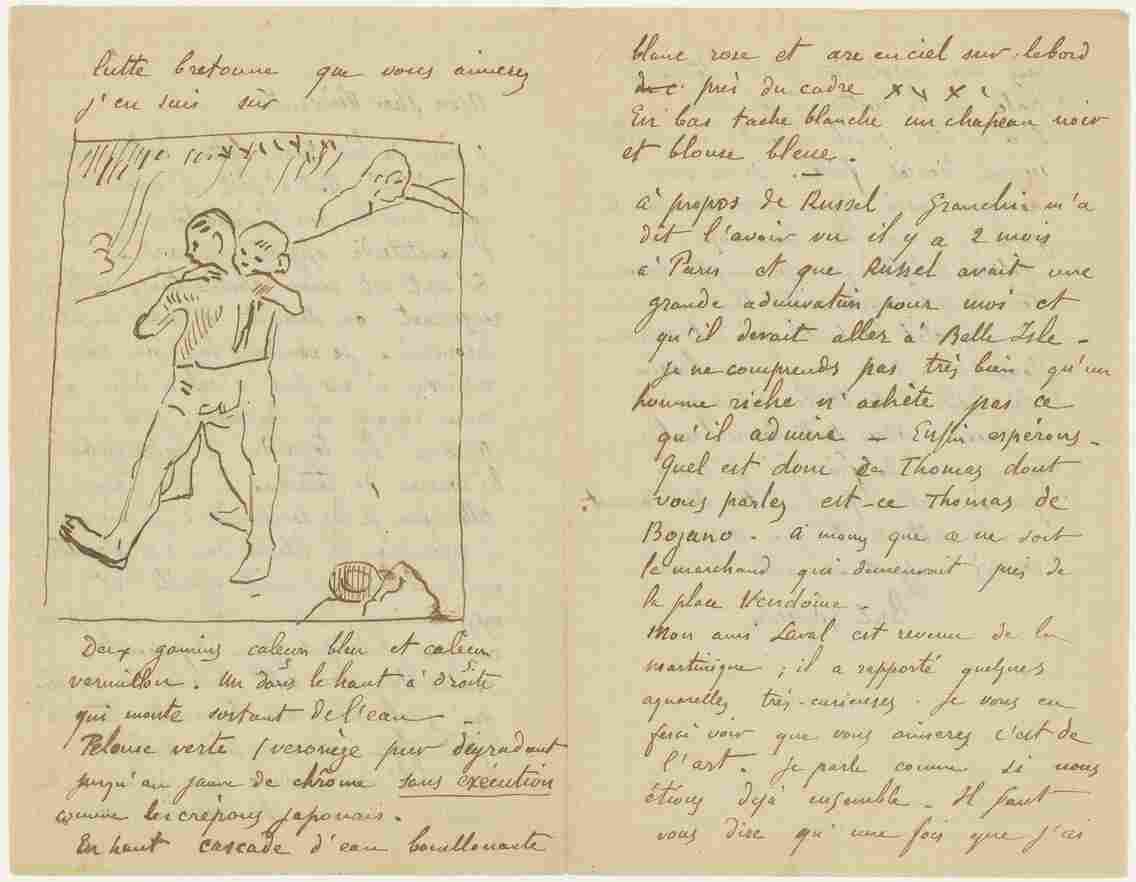 lutte bretonne que vous aimerez
j'en suis sur
Deux gamins caleçon bleu et caleçon
vermillon. Un dans le haut à droite
qui monte sortant de l'eau _
Pelouse verte (veronèze pur dégradant
jusqu'au jaune de chrôme sans exécution
comme les crépons japonais.
En haut cascade d'eau bouillonante
blanc rose et arc en ciel sur le bord
près du cadre x x x
En bas tache blanche un chapeau noir
et blouse bleue.
à propos de Russel Granchin m'a
dit l'avoir vu il y a 2 mois
à Paris et que Russel avait une
grande admiration pour moi et
qu'il devait aller à Belle Isle _
je ne comprends pas très bien qu'un
homme riche n'achète pas ce
qu'il admire _ Enfin espérons _
Quel est donc Thomas dont
vous parlez est-ce Thomas de
Bojano. à moins que ce ne soit
le marchand qui demeurait près de
la place Vendôme _
Mon ami Laval est revenu de la
martinique ; il a rapporté quelques
aquarelles très curieuses. Je vous en
ferai voir que vous aimerez c'est de
l'art. Je parle comme si nous
étions dejà ensemble _ Il faut
vous dire qu'une fois que j'ai